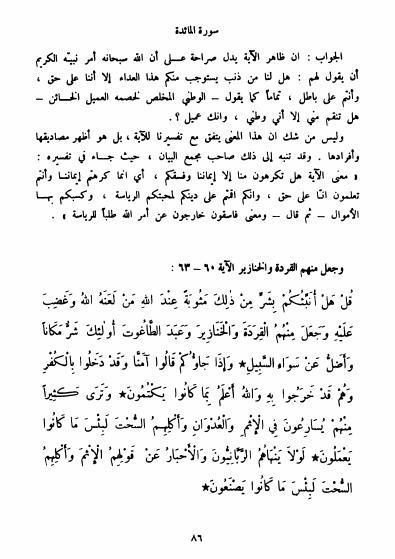 سورة المائدة
الجواب : ان ظاهر الآية يدل صراحة عـلى أن الله سبحانه أمر نبيّه الكريم
أن يقول لهم : هل لنا من ذنب يستوجب منكم هذا العداء إلا أننا على حق ،
وأنتم على باطل ، تماماً كما يقول – الوطني المخلص لخصمه العميل الخائـن –
هل تنقم مني إلا أني وطني ، وانك عميل ؟ .
وليس من شك ان هذا المعنى يتفق مع تفسيرنا للآية ، بل هو أظهر مصاديقها
وأفرادها . وقد تنبه إلى ذلك صاحب مجمع البيان ، حيث جـاء في تفسيره :
« معنى الآية هل تكرهون منا إلا إيماننا وفسقكم ، أي انما كرهتم إيمانـنا وأنتم
تعلمون انّـا على حق ، وانكم اقمتم على دينكم لمحبتكم الرياسة ، وكسبكم بهـا
الأموال – ثم قال – ومعنى فاسقون خارجون عن أمر الله طلباً للرياسة » .
وجعل منهم القردة والخنازير الآية ٦٠ – ٦٣ :
قُلْ هَلْ أُنَبِّئُكُمْ بِشَرٍّ مِنْ ذٰلِكَ مَثُوبَةً عِنْدَ اللهِ مَنْ لَعَنَهُ اللهُ وَغَضِبَ
عَلَيْهِ وَجَعَلَ مِنْهُمُ الْقِرَدَةَ وَالْخَنَازِيرَ وَعَبَدَ الطَّاغُوتَ أُولٰئِكَ شَرٌّ مَكَاناً
وَأَضَلُّ عَنْ سَوَاءِ السَّبِيلِ★ وَإِذَا جَاؤُكُمْ قَالُوا آمَنَّا وَقَدْ دَخَلُوا بِالْكُفْرِ
وَهُمْ قَدْ خَرَجُوا بِهِ وَاللهُ أَعْلَمُ بِمَا كَانُوا يَكْتُمُونَ★ وَتَرَى كَثِيراً
مِنْهُمْ يُسَارِعُونَ فِي الْإِثْمِ وَالْعُدْوَانِ وَأَكْلِهِمُ السُّحْتَ لَبِئْسَ مَا كَانُوا
يَعْمَلُونَ★ لَوْلَا يَنْهَاهُمُ الرَّبَّانِيُّونَ وَالْأَحْبَارُ عَنْ قَوْلِهِمُ الْإِثْمَ وَأَكْلِهِمُ
السُّحْتَ لَبِئْسَ مَا كَانُوا يَصْنَعُونَ★
٨٦